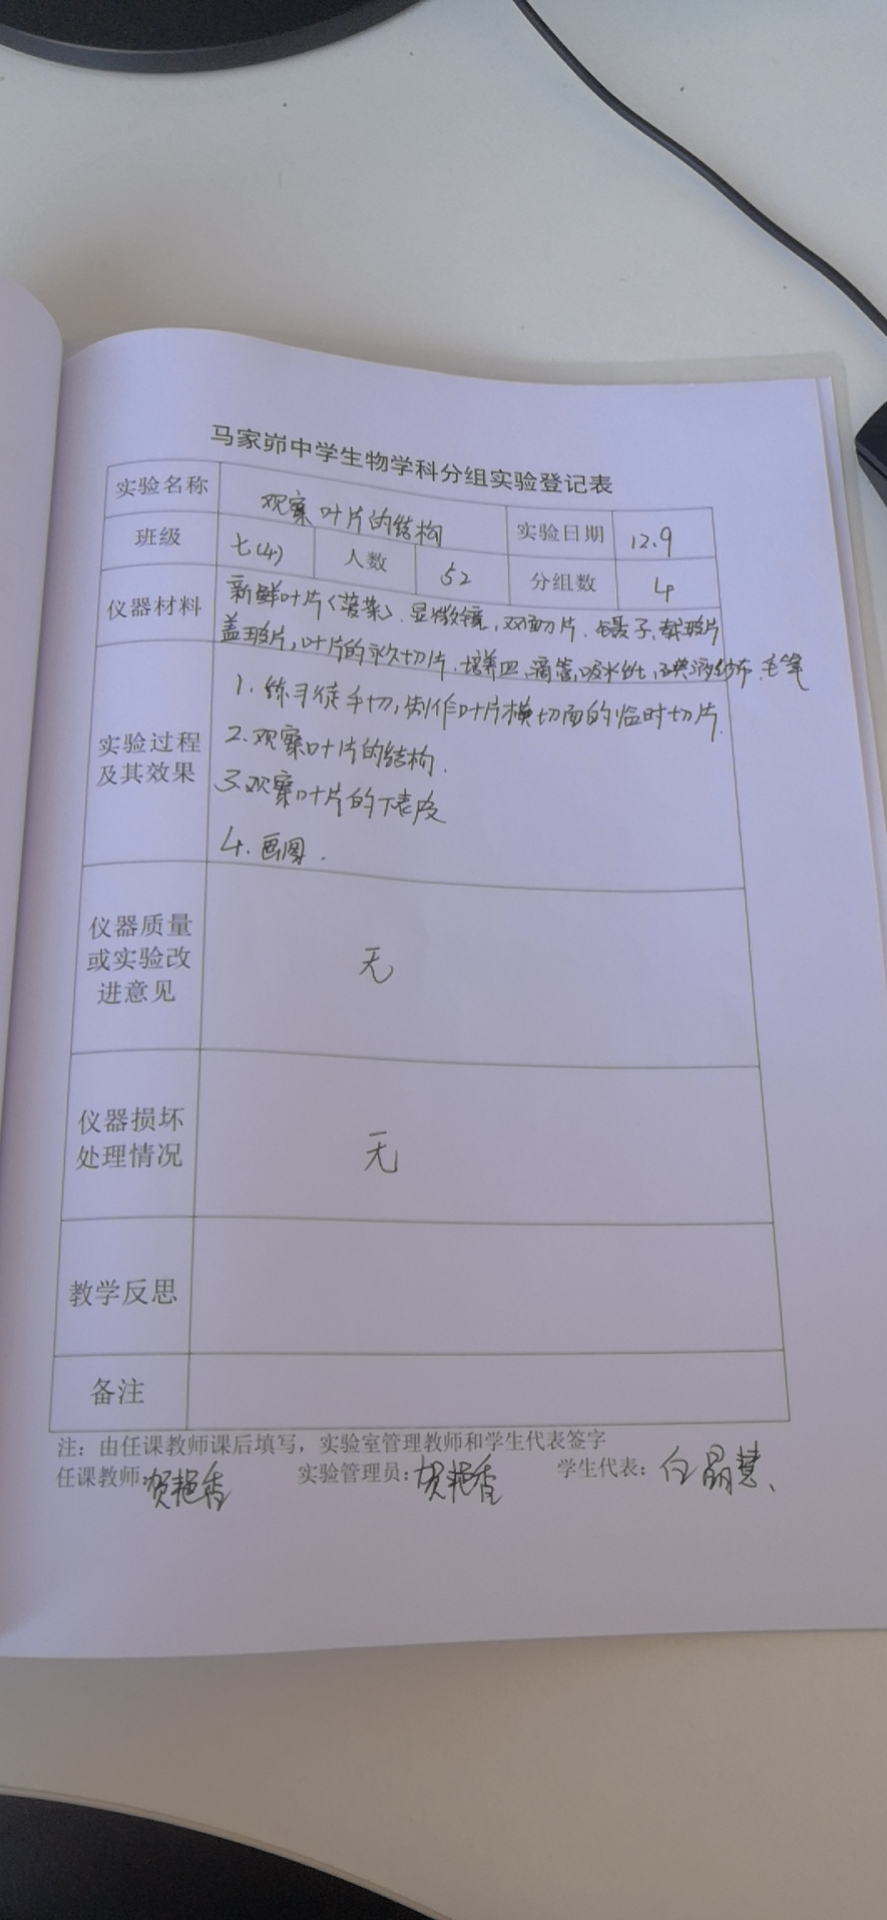 马家峁中学生物学科分组实验登记表
实验名称 观察叶片的结构 实验日期 12.9
班级 七(4) 人数 52 分组数 4
仪器材料 新鲜叶片(菠菜).显微镜,双面刀片.镊子,载玻片
盖玻片,叶片的永久切片.培养皿,滴管,吸水纸,碘液,纱布.毛笔
实验过程
及其效果
1.练习徒手切,制作叶片横切面的临时切片.
2.观察叶片的结构.
3.观察叶片的下表皮
4.画图.
仪器质量
或实验改
进意见
无
仪器损坏
处理情况
无
教学反思
备注
注：由任课教师课后填写，实验室管理教师和学生代表签字
任课教师:贺艳香 实验管理员:贺艳香 学生代表:白晶慧